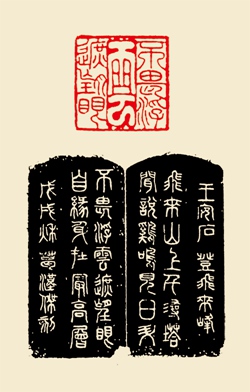 不畏浮
雲
遮望眼
王安石 登飛來峰
飛來山上千尋塔
聞說雞鳴見日升
不畏浮雲遮望眼
自緣身在最高層
戊戌秋 葛漢傑刻